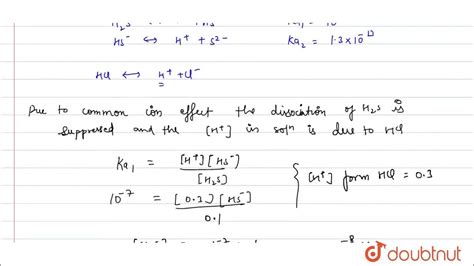 HS⁻ ↔ H⁺ + S²⁻ Ka₂ = 1.3×10⁻¹³
HCl ↔ H⁺ + Cl⁻
Due to common ion effect the dissociation of H₂S is
suppressed and the [H⁺] in solⁿ is due to HCl
Ka₁ = [H⁺][HS⁻] / [H₂S]
{ [H⁺] form HCl = 0.3
10⁻⁷ = [0.3][HS⁻] / 0.1
doubtnut